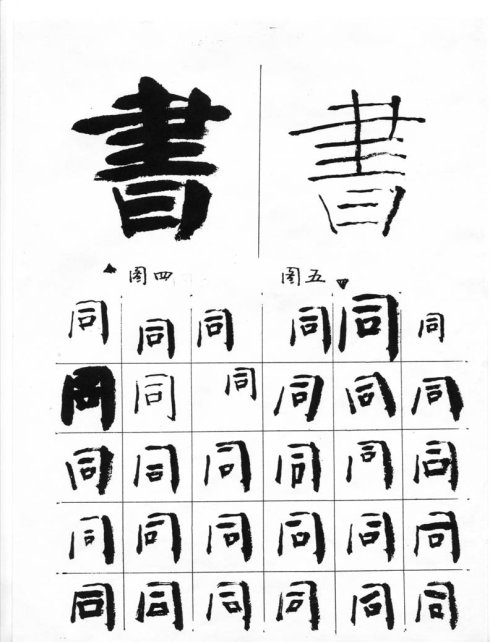 書 書
图四 图五
同 同 同 同 同 同
同 同 同 同 同 同
同 同 同 同 同 同
同 同 同 同 同 同
同 同 同 同 同 同